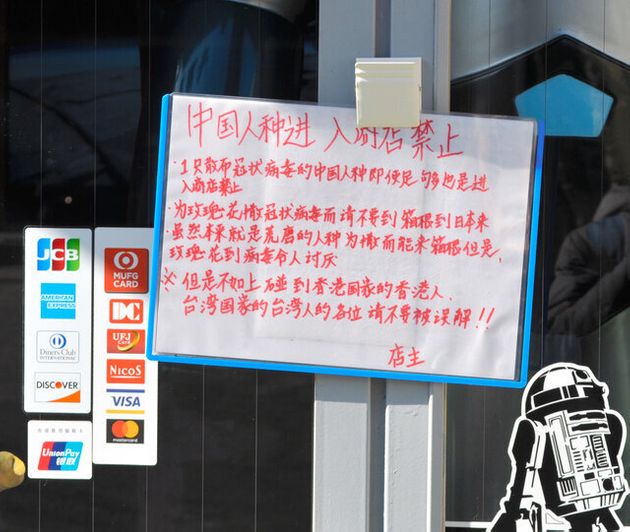 中国人种进 入商店禁止
・1只散布冠状病毒的中国人种即使足够也是进
入商店禁止
・为玫瑰花撒冠状病毒而请不要到箱根到日本来
・虽然本来就是荒唐的人种为撒而能来箱根但是,
玫瑰花到病毒令人讨厌
※但是不如上碰到香港国家的香港人、
台湾国家的台湾人的各位请不要被误解!!
店主
JCB
AMERICAN EXPRESS
Diners Club
INTERNATIONAL
DISCOVER
UnionPay
银联
MUFG
CARD
DC
UFJ Card
NICOS
VISA
mastercard